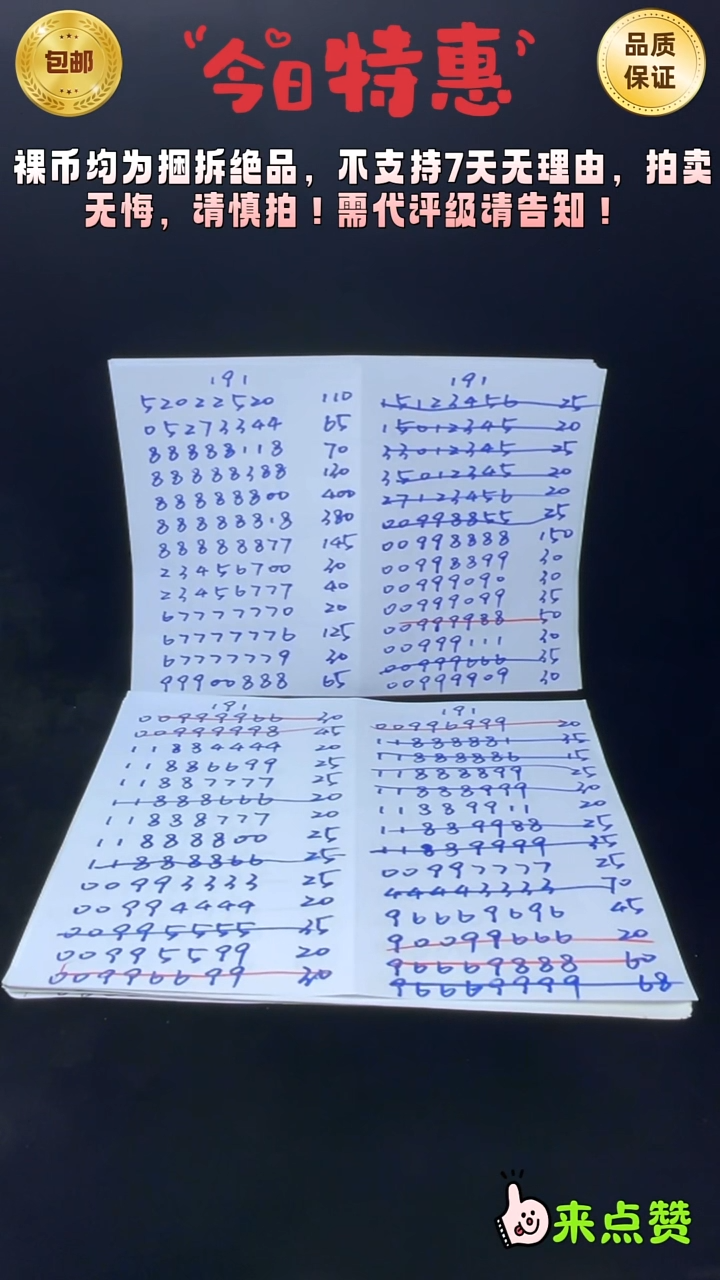 包邮
今日特惠
品质
保证
裸币均为捆拆绝品，不支持7天无理由，拍卖
无悔，请慎拍！需代评级请告知！
191
52022520 110
05273344 65
88888118 70
88888388 130
88888800 400
88888818 380
88888877 145
23456700 30
23456777 40
67777770 20
67777776 125
67777779 30
99900888 65
191
15123456 25
15012345 20
33012345 25
35012345 20
27123456 20
00998855 25
00998888 150
00998899 30
00999090 30
00999099 35
00999988 50
00999111 30
00999666 35
00999909 30
191
00999966 30
00999998 45
11884444 20
11886699 25
11887777 25
11888666 20
11888777 20
11888800 25
11888866 25
00993333 25
00994444 20
00995555 35
00995599 20
00996699 30
191
00996999 20
11888881 35
11888886 15
11888899 25
11888999 30
11889911 20
11889988 25
11889999 35
00997777 25
44443333 70
96669696 45
90099666 20
96669888 60
96669999 68
来点赞